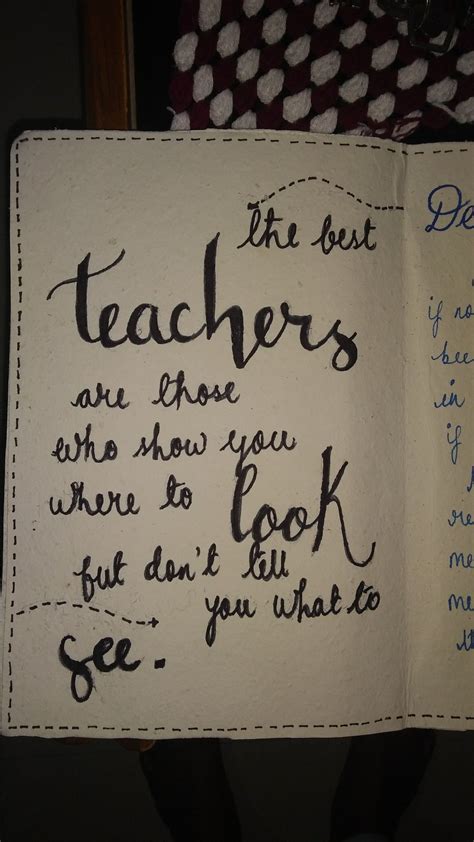 the best
teachers
are those
who show you
where to look
but don't tell
you what to
see.
De
if no
bee
in
if
re
me
me